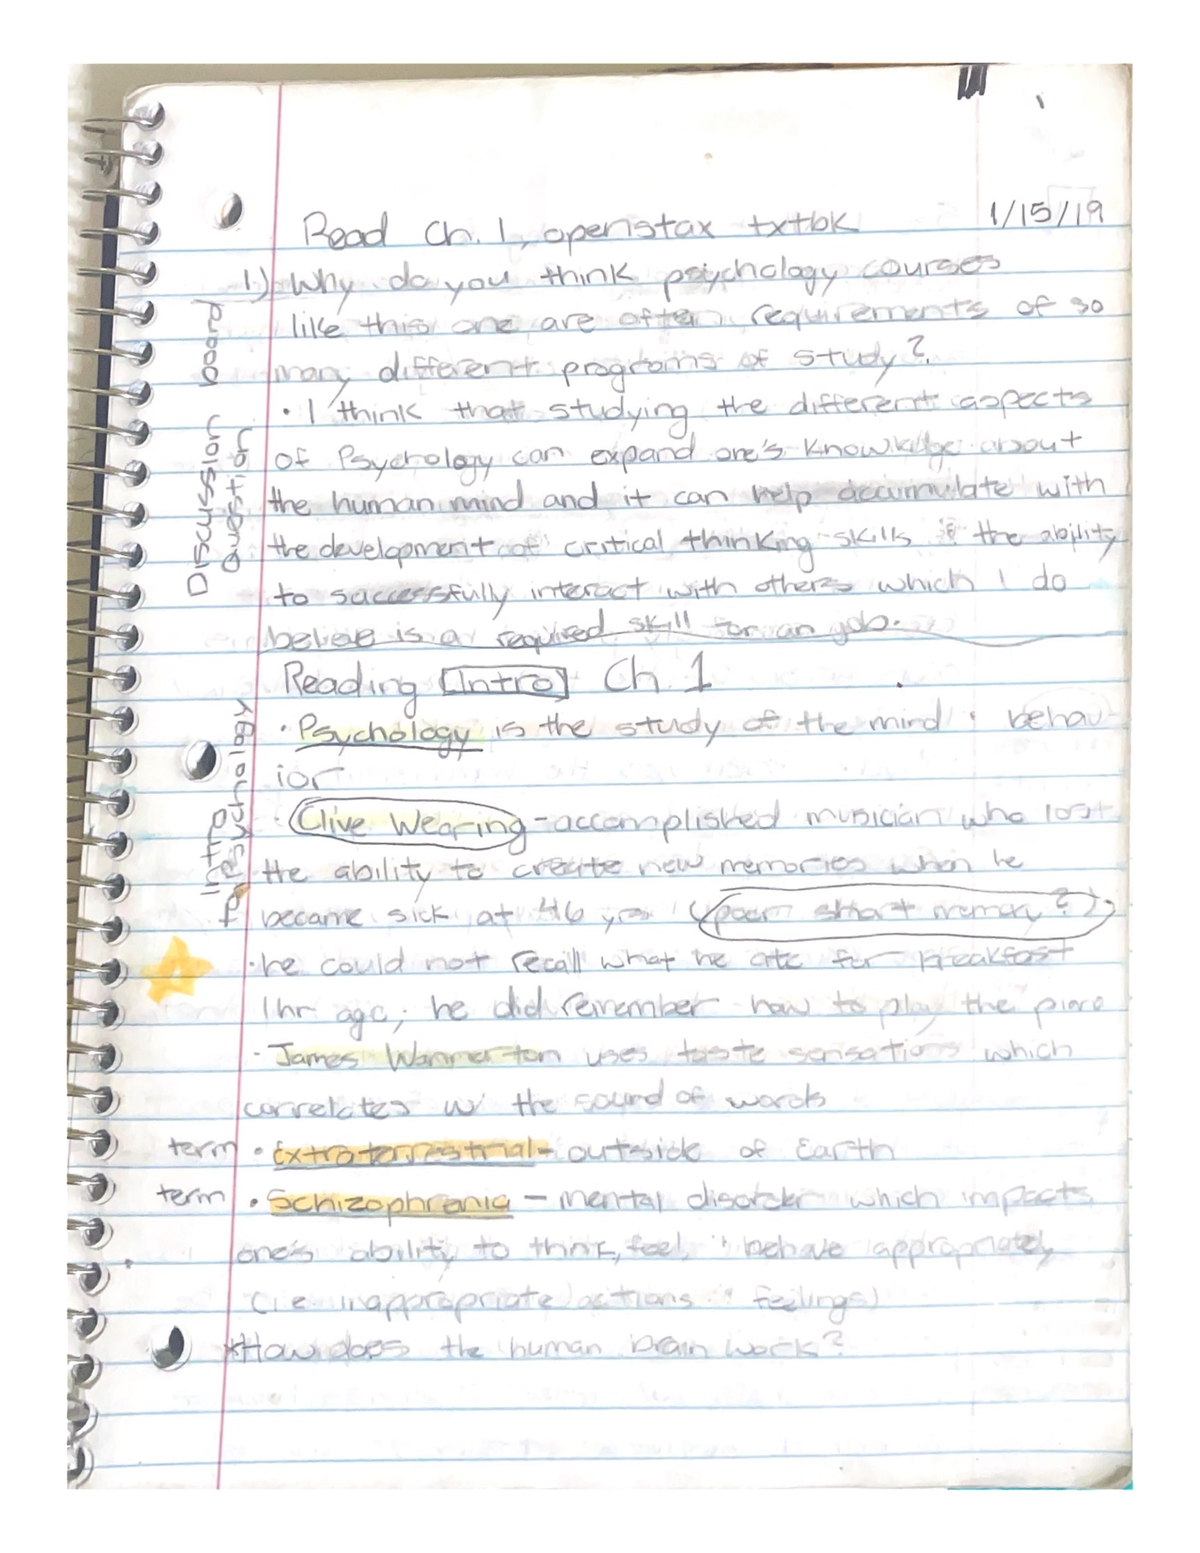 1/15/19
Read Ch. 1, openstax txtbk
Discussion board
Question
1.) Why do you think psychology courses
like this one are often requirements of so
many different programs of study?
• I think that studying the different aspects
of Psychology can expand one's knowledge about
the human mind and it can help accumulate with
the development of critical thinking skills & the ability
to successfully interact with others which I do
believe is a required skill for an job.
Reading [Intro] Ch 1
Intro
to Psychology
• Psychology is the study of the mind & behav-
ior
• Clive Wearing - accomplished musician who lost
the ability to create new memories when he
became sick at 46 yrs (poor short memory?)
• he could not recall what he ate for breakfast
1hr ago; he did remember how to play the piano
• James Wannerton uses taste sensations which
correlates w/ the sound of words
term • Extraterrestrial - outside of Earth
term • Schizophrenia - mental disorder which impacts
one's ability to think, feel, & behave appropriately
(i.e. inappropriate actions & feelings)
*How does the human brain work?